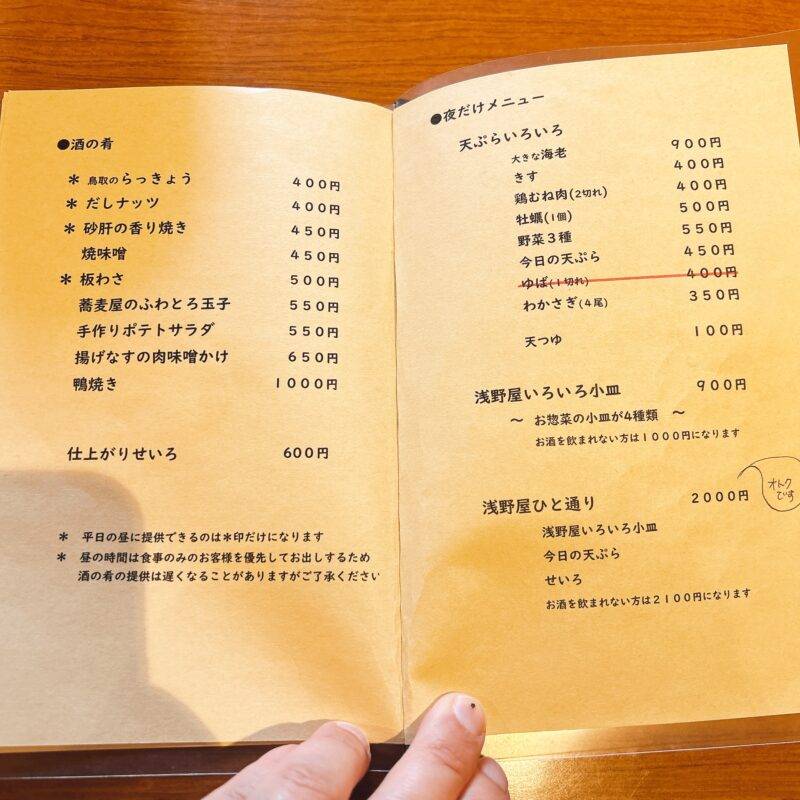 ●酒の肴
＊ 鳥取のらっきょう ４００円
＊ だしナッツ ４００円
＊ 砂肝の香り焼き ４５０円
焼味噌 ４５０円
＊ 板わさ ５００円
蕎麦屋のふわとろ玉子 ５５０円
手作りポテトサラダ ５５０円
揚げなすの肉味噌かけ ６５０円
鴨焼き １０００円
仕上がりせいろ 600円
＊ 平日の昼に提供できるのは＊印だけになります
＊ 昼の時間は食事のみのお客様を優先してお出しするため
酒の肴の提供は遅くなることがありますがご了承ください
●夜だけメニュー
天ぷらいろいろ
大きな海老 ９００円
きす ４００円
鶏むね肉(2切れ) ４００円
牡蠣(1個) ５００円
野菜３種 ５５０円
今日の天ぷら ４５０円
ゆば(1切れ) ４００円
わかさぎ(4尾) ３５０円
天つゆ １００円
浅野屋いろいろ小皿 ９００円
～ お惣菜の小皿が4種類 ～
お酒を飲まれない方は１０００円になります
浅野屋ひと通り ２０００円
オトク
です
浅野屋いろいろ小皿
今日の天ぷら
せいろ
お酒を飲まれない方は２１００円になります